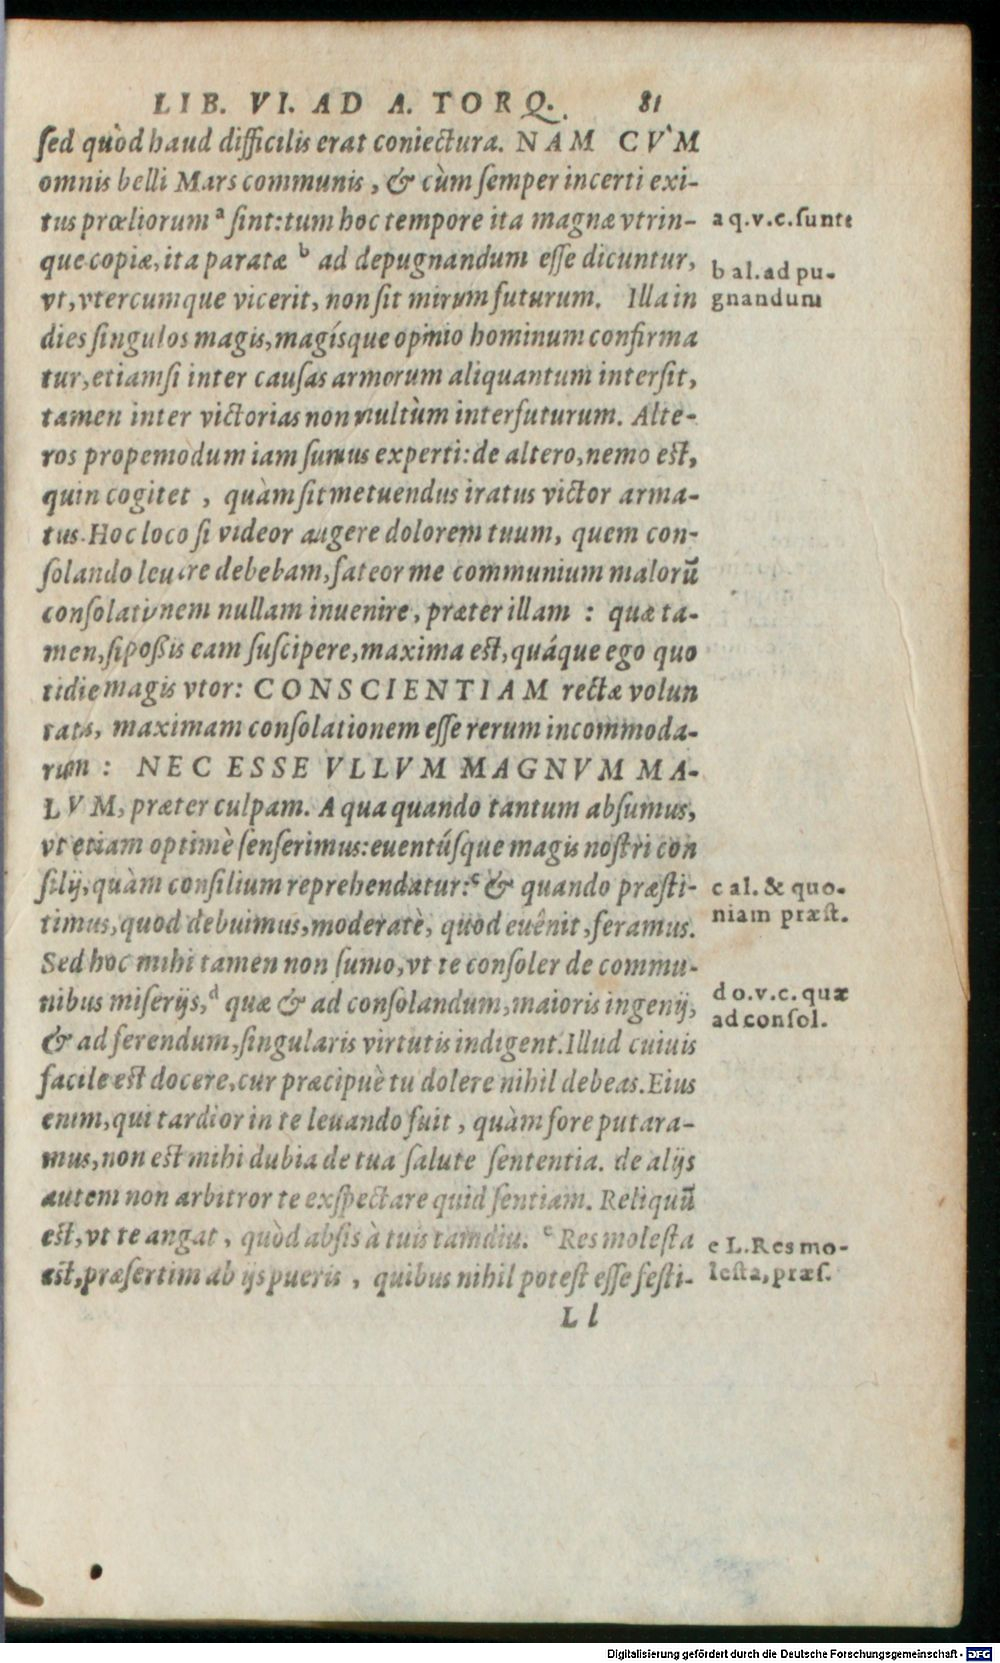 LIB. VI. AD A. TORQ. 81
ſed quòd haud difficilis erat coniectura. NAM CV̀M
omnis belli Mars communis, & cùm ſemper incerti exi-
tus prœliorum ᵃ ſint: tum hoc tempore ita magnæ vtrin-
que copiæ, ita paratæ ᵇ ad depugnandum eſſe dicuntur,
vt, vtercumque vicerit, non ſit mirum futurum. Illa in
dies ſingulos magis, magíſque opinio hominum confirma
tur, etiamſi inter cauſas armorum aliquantum interſit,
tamen inter victorias non multùm interfuturum. Alte-
ros propemodum iam ſumus experti: de altero, nemo est,
quin cogitet, quàm ſit metuendus iratus victor arma-
tus. Hoc loco ſi videor augere dolorem tuum, quem con-
ſolando leuare debebam, fateor me communium malorū
conſolationem nullam inuenire, præter illam: quæ ta-
men, ſi poßis eam ſuſcipere, maxima est, quáque ego quo
tidie magis vtor: CONSCIENTIAM rectæ volun
tatis, maximam conſolationem eſſe rerum incommoda-
rum: NEC ESSE VLLVM MAGNVM MA-
LVM, præter culpam. A qua quando tantum abſumus,
vt etiam optimè ſenſerimus: euentúſque magis noſtri con
ſilij, quàm conſilium reprehendatur: ᶜ & quando præſti-
timus, quod debuimus, moderatè, quod euênit, feramus.
Sed hoc mihi tamen non ſumo, vt te conſoler de commu-
nibus miſerijs, ᵈ quæ & ad conſolandum, maioris ingenij,
& ad ferendum, ſingularis virtutis indigent. Illud cuiuis
facile est docere, cur præcipuè tu dolere nihil debeas. Eius
enim, qui tardior in te leuando fuit, quàm fore putara-
mus, non est mihi dubia de tua ſalute ſententia. de alijs
autem non arbitror te exſpectare quid ſentiam. Reliquū
est, vt te angat, quòd abſis à tuis tamdiu. ᵉ Res moleſta
est, præſertim ab ijs pueris, quibus nihil poteſt eſſe feſti-
Ll
a q.v.c. ſunt
b al. ad pu-
gnandum
c al. & quo-
niam præſt.
d o.v.c. quæ
ad conſol.
e L. Res mo-
leſta, præſ.
Digitalisierung gefördert durch die Deutsche Forschungsgemeinschaft - DFG